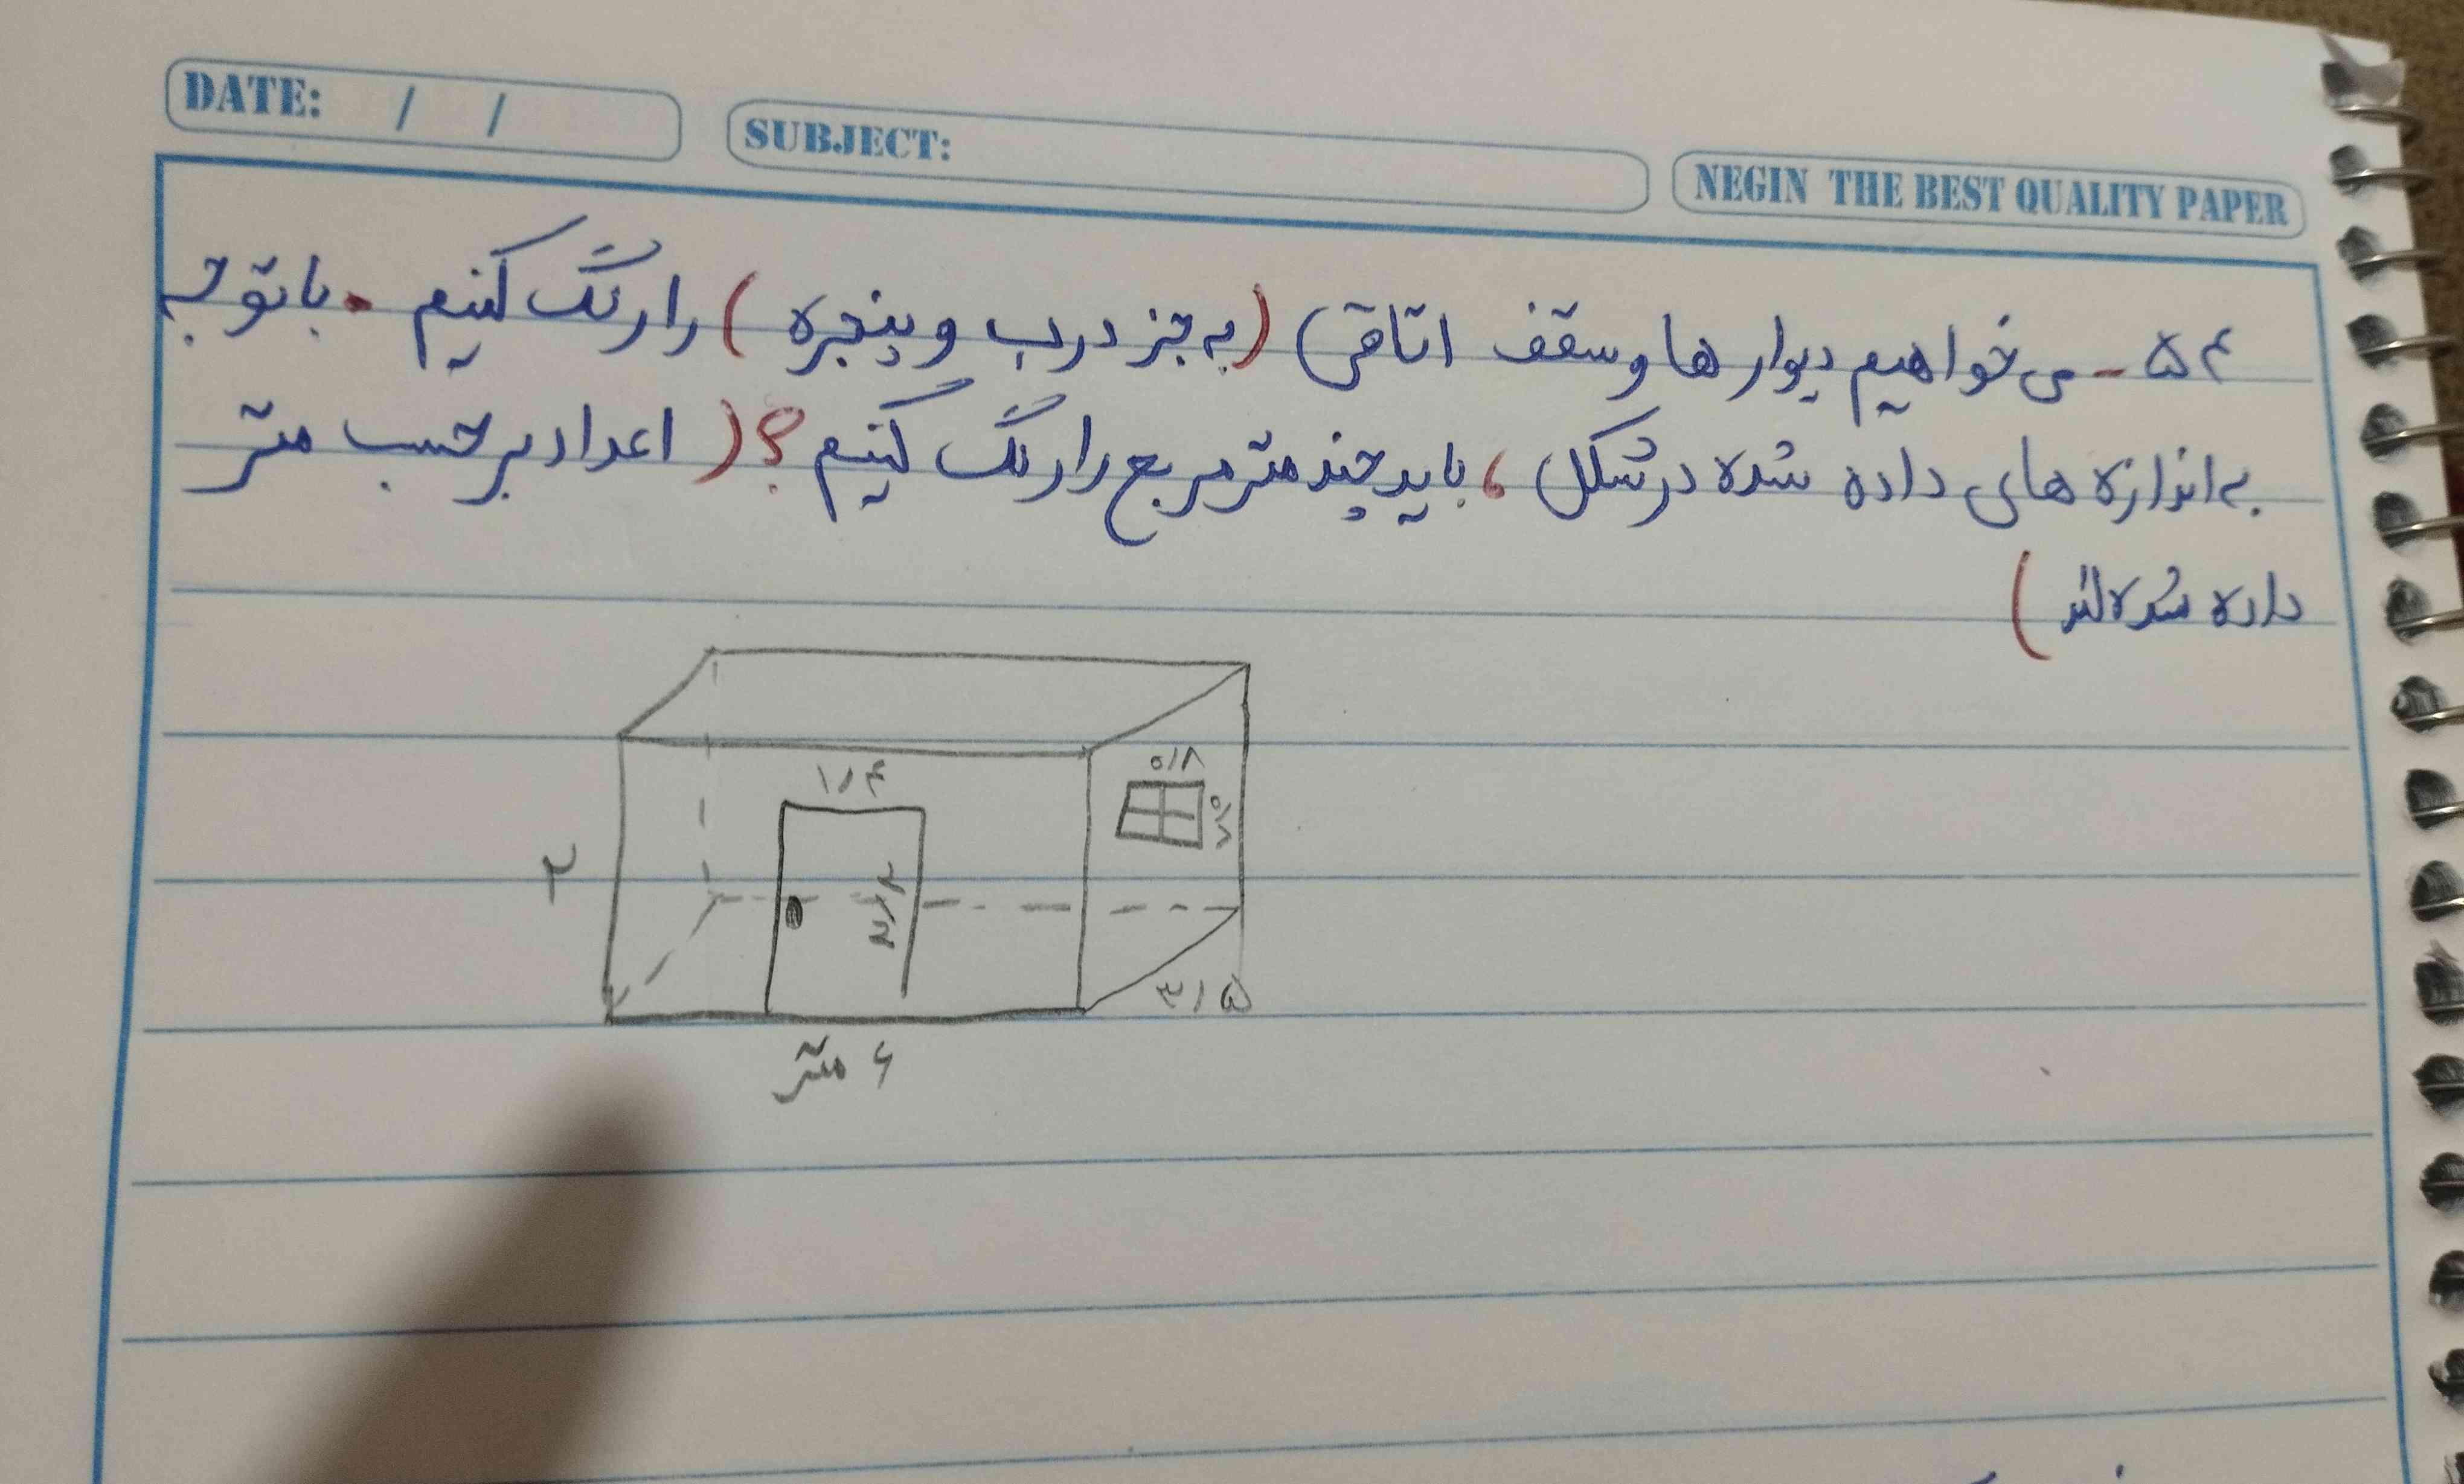 DATE: / /
SUBJECT:
NEGIN THE BEST QUALITY PAPER
۵۴ - می خواهیم دیوار ها و سقف اتاقی (به جز درب و پنجره) را رنگ کنیم. با توجه
به اندازه های داده شده در شکل، باید چند متر مربع را رنگ کنیم؟ (اعداد بر حسب متر
داده شده اند)
۰/۸
۱/۴
۰/۸
۲
۲/۲
۳/۵
۶ متر